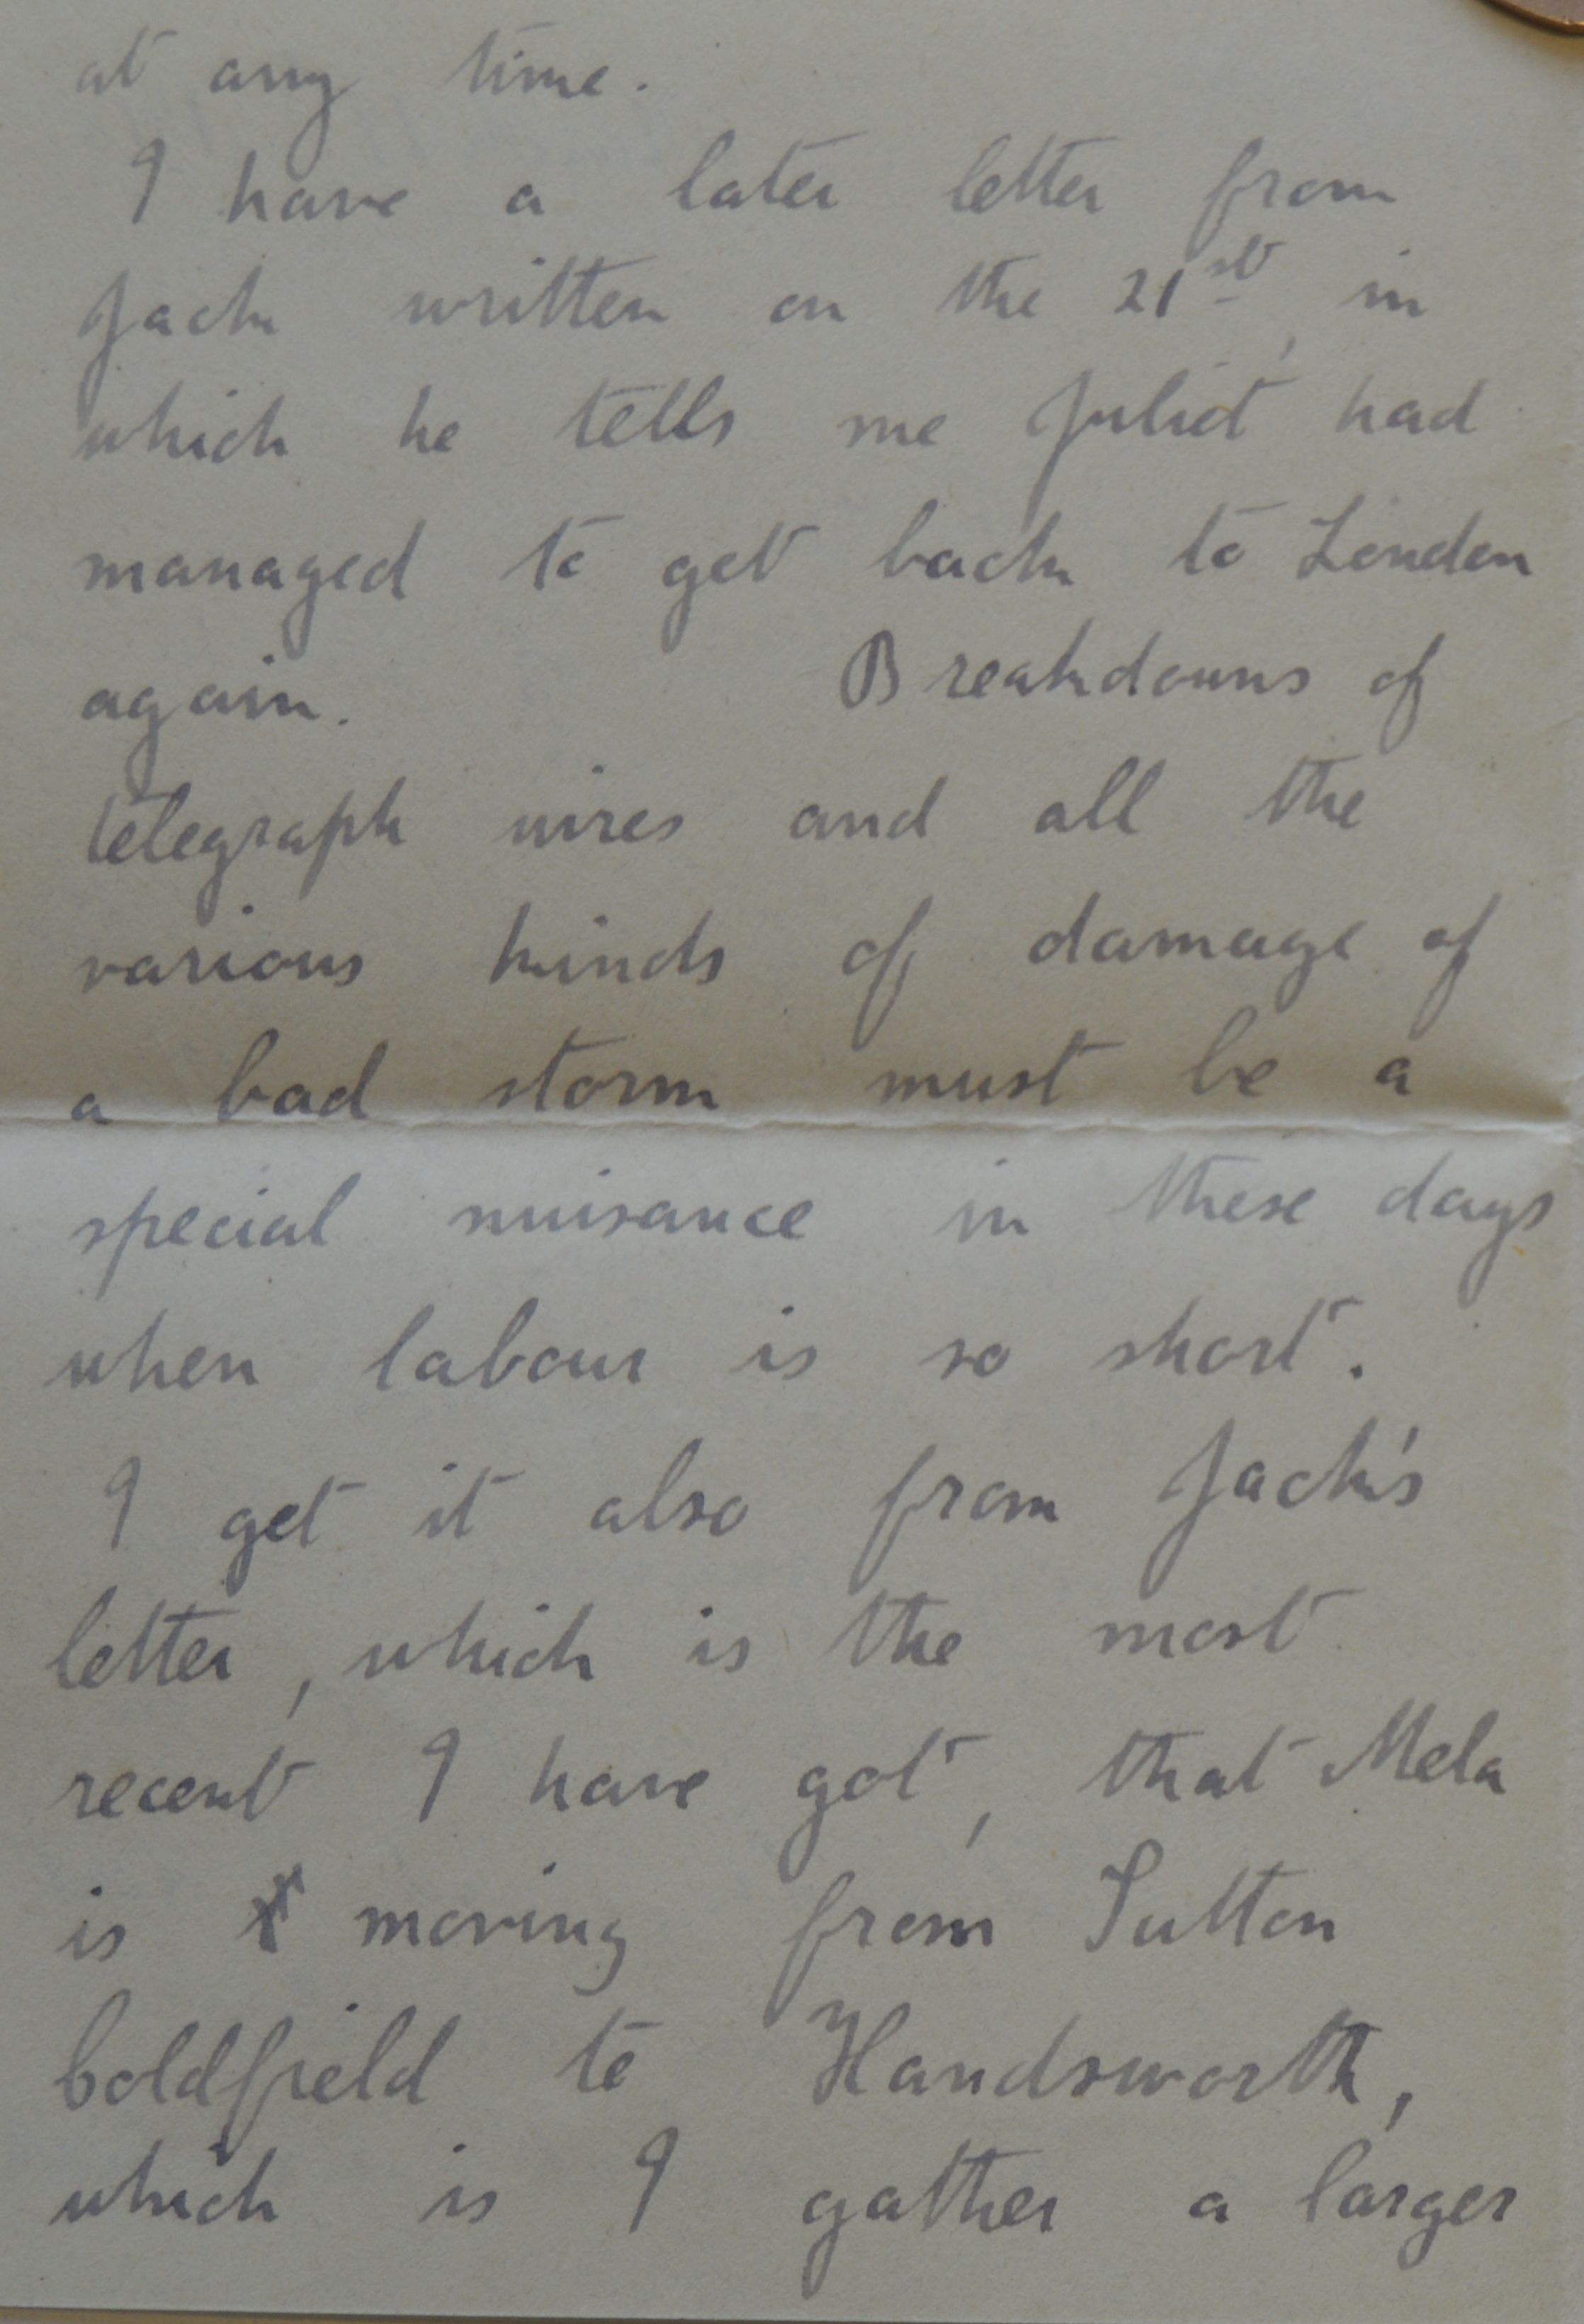 at any time.
I have a later letter from
Jack written on the 21st, in
which he tells me Juliet had
managed to get back to London
again. Breakdowns of
telegraph wires and all the
various kinds of damage of
a bad storm must be a
special nuisance in these days
when labour is so short.
I get it also from Jack's
letter, which is the most
recent I have got, that Mela
is moving from Sutton
Coldfield to Handsworth,
which is I gather a larger